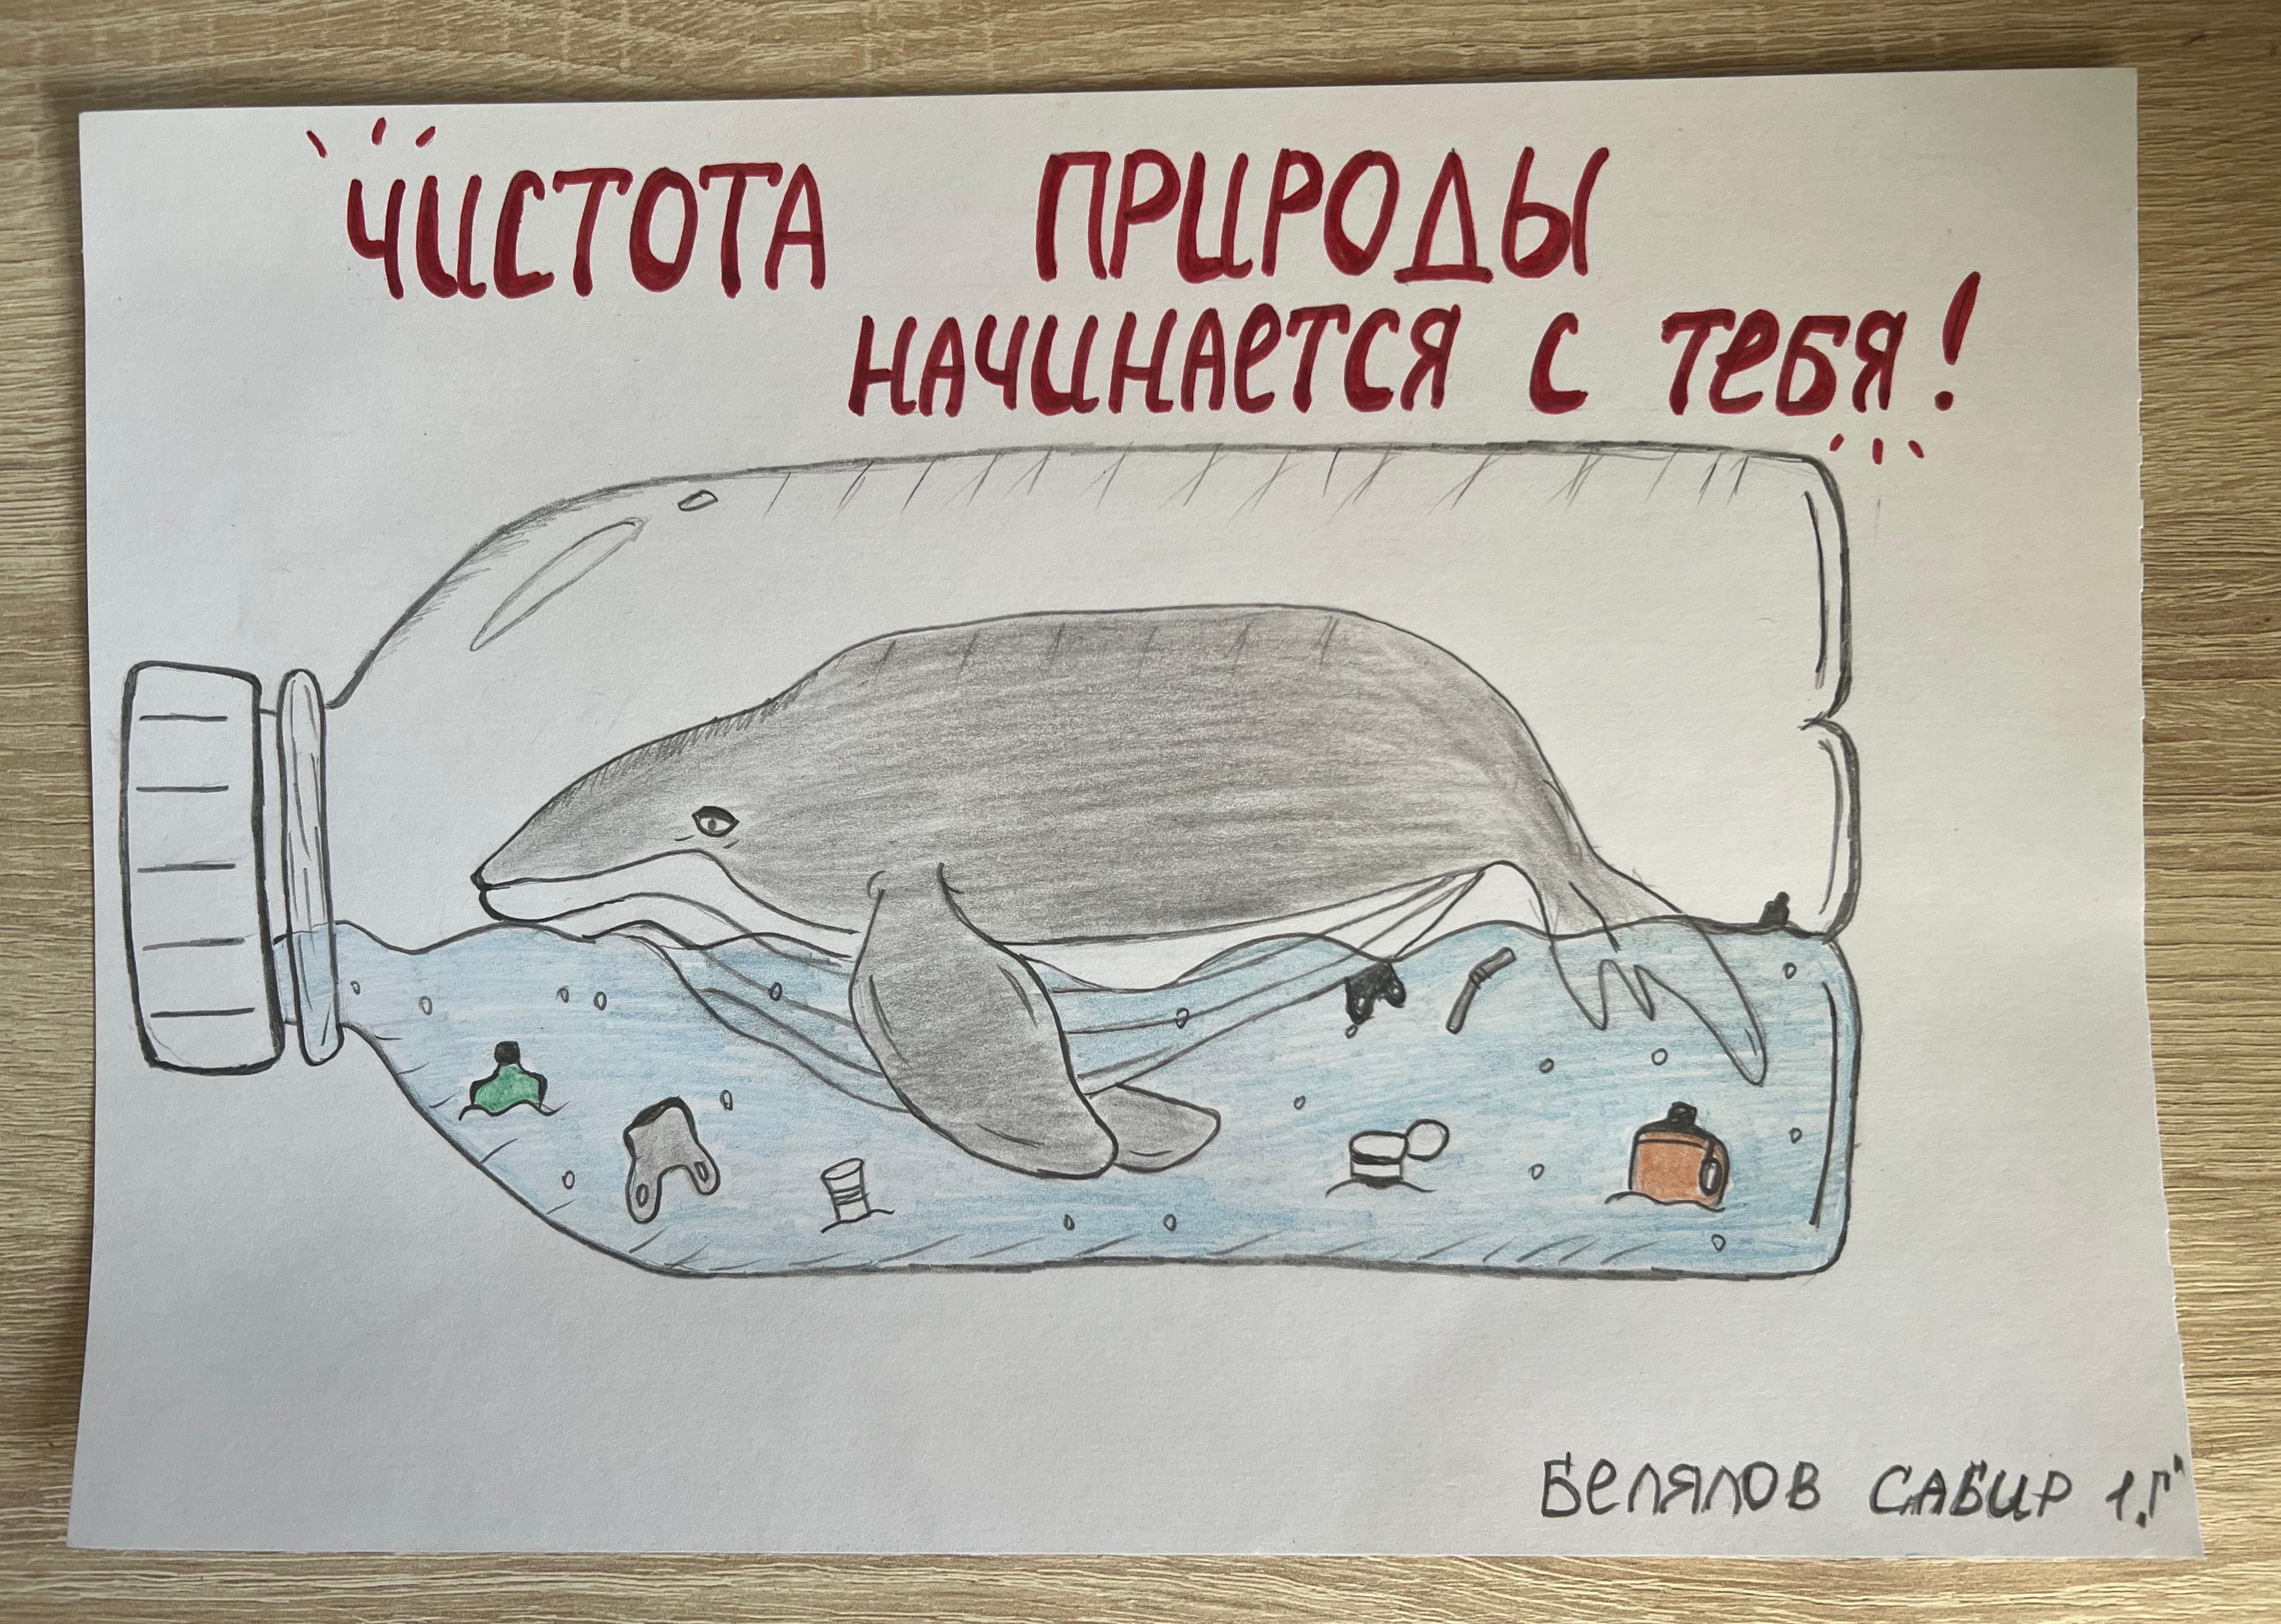 ЧИСТОТА ПРИРОДЫ
НАЧИНАЕТСЯ С ТЕБЯ!
БЕЛЯЛОВ САБИР 1„Г"